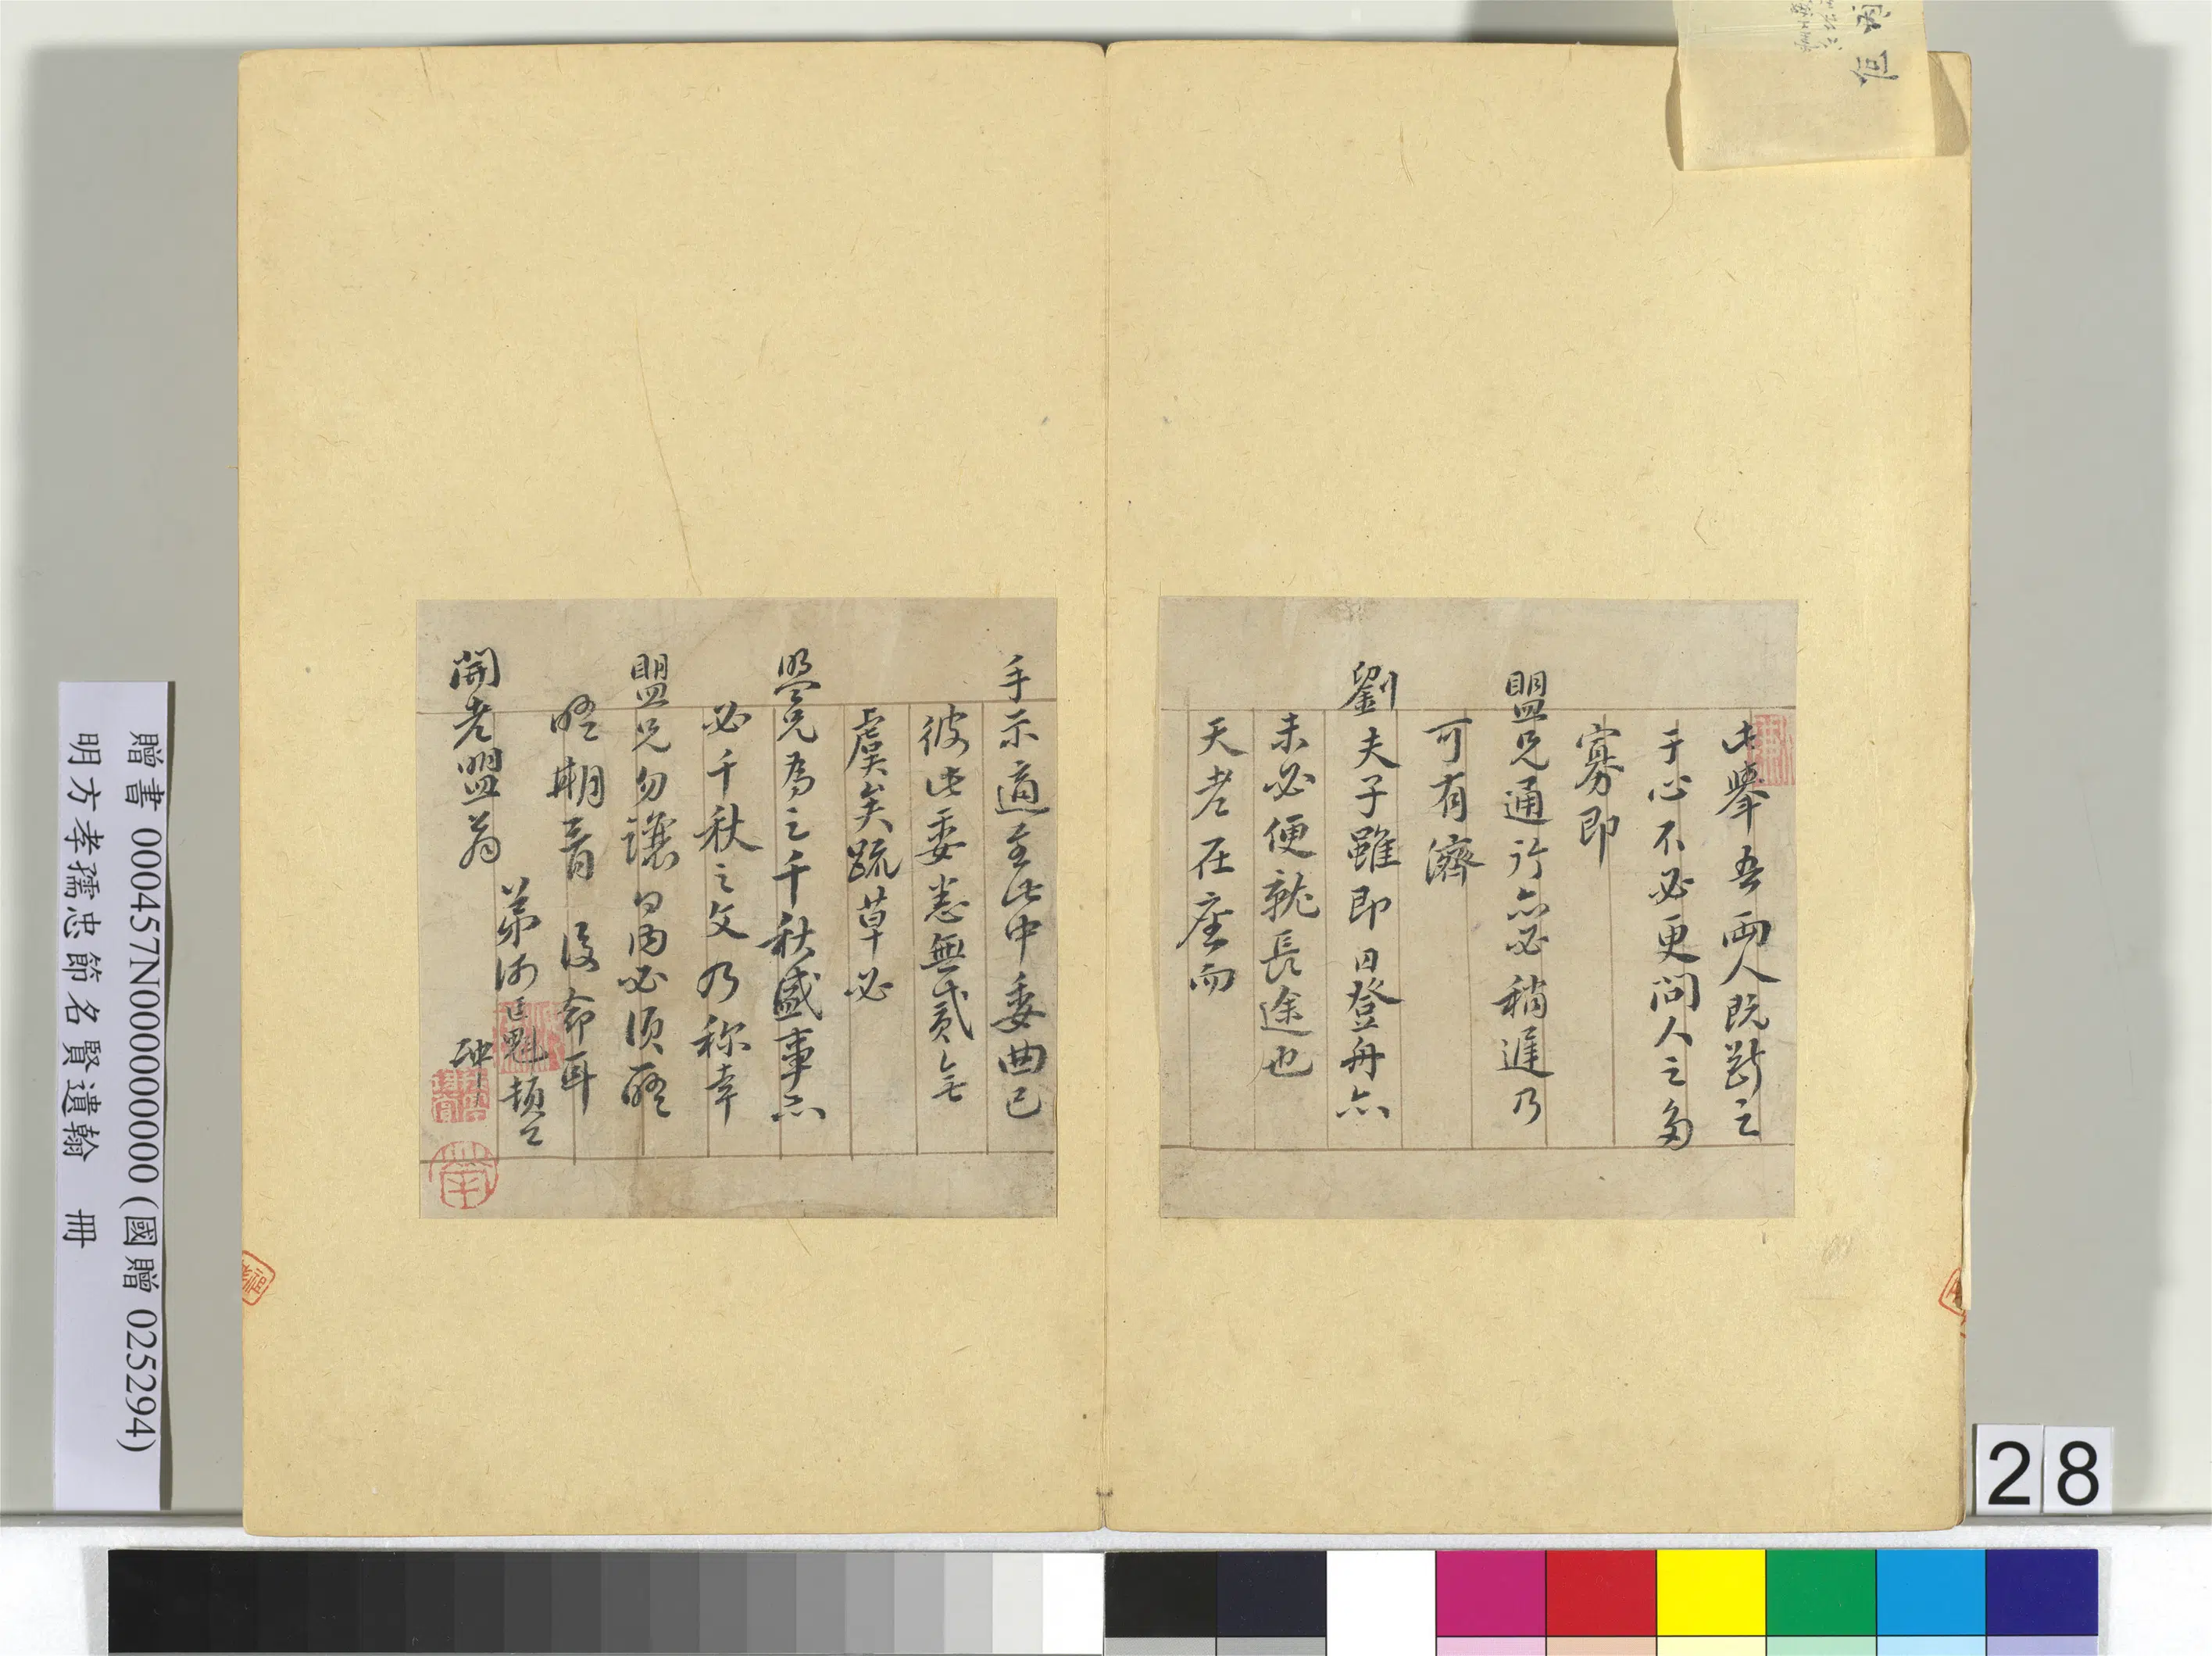 此舉吾兩人既斷之
于心不必更問人之多
寡即
盟兄通行亦必稍遲乃
可有濟
劉夫子雖即日登舟亦
未必便就長途也
天老在座而
手示適至此中委曲已
彼此委悉無貳無
虞矣疏草必
盟兄為之千秋盛事亦
必千秋之文乃称幸
盟兄勿讓日內必須
期音後命耳
開老盟翁
弟 頓首
贈書 000457N000000000 (國贈 025294)
明方孝孺忠節名賢遺翰 冊
28